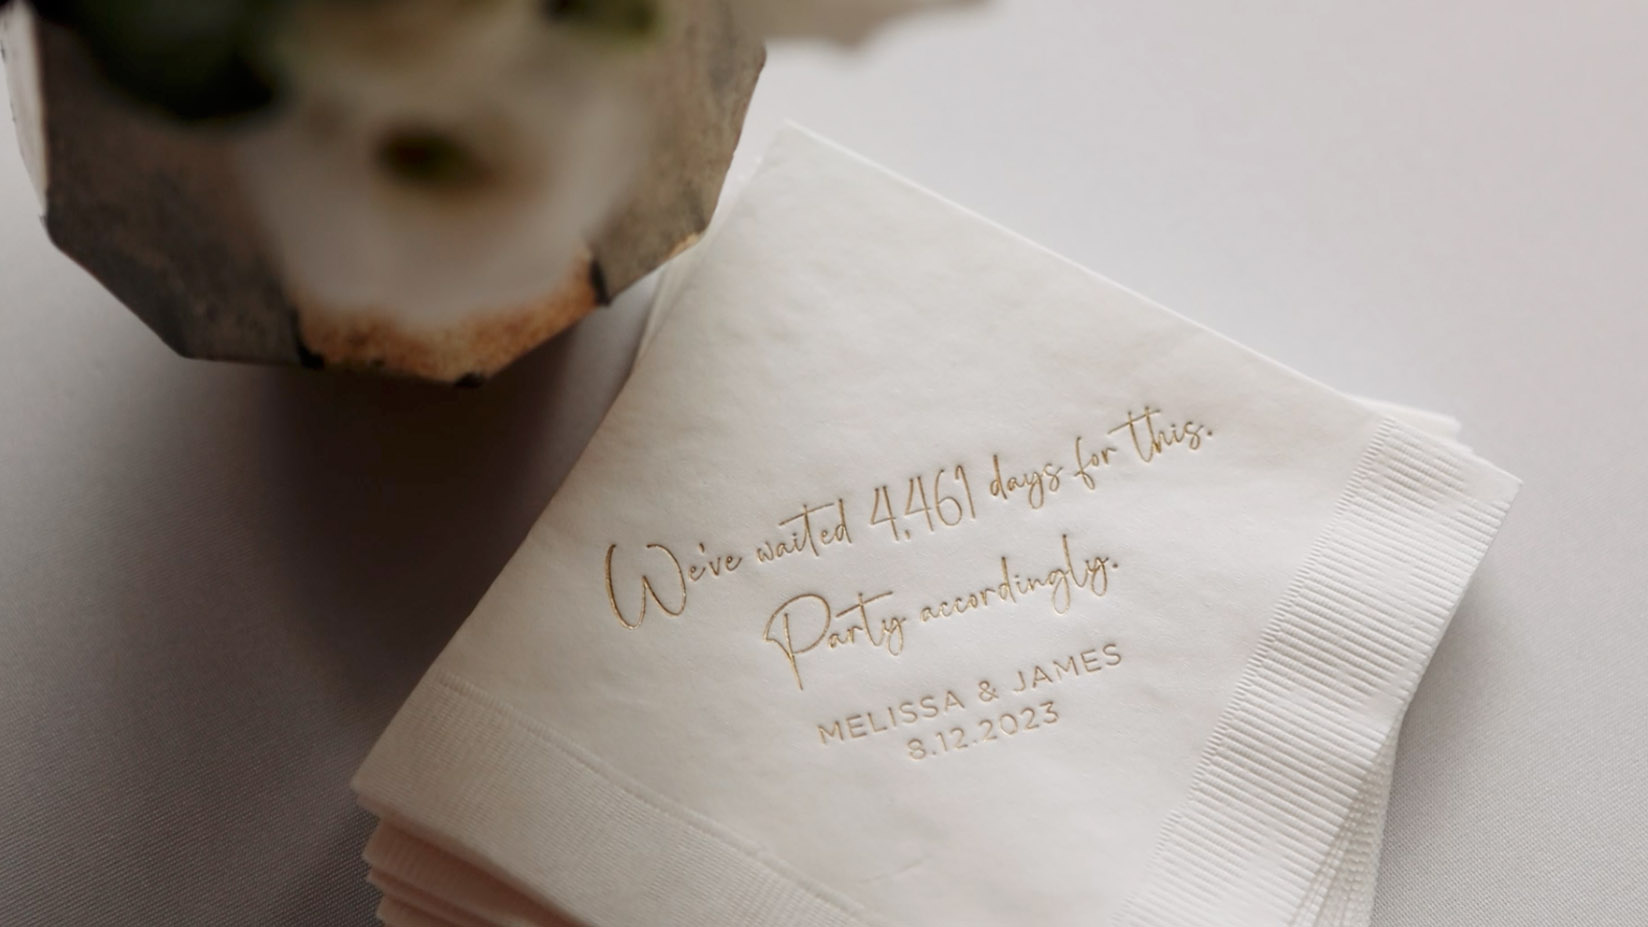 We've waited 4,461 days for this.
Party accordingly.
MELISSA & JAMES
8.12.2023